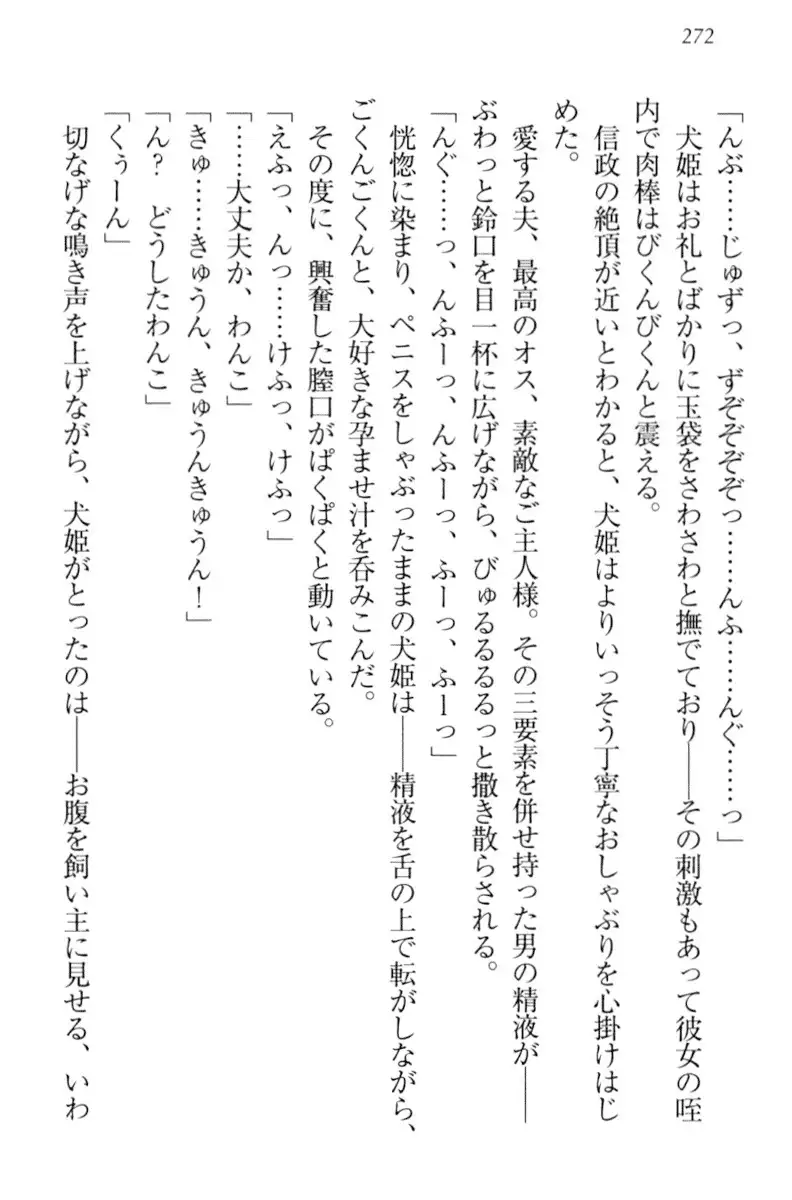 272
「んぶ……じゅずっ、ずぞぞぞぞっ……んふ……んぐ……っ」
犬姫はお礼とばかりに玉袋をさわさわと撫でており――その刺激もあって彼女の咥
内で肉棒はびくんびくんと震える。
信政の絶頂が近いとわかると、犬姫はよりいっそう丁寧なおしゃぶりを心掛けはじ
めた。
愛する夫、最高のオス、素敵なご主人様。その三要素を併せ持った男の精液が――
ぶわっと鈴口を目一杯に広げながら、びゅるるるるっと撒き散らされる。
「んぐ……っ、んふーっ、んふーっ、ふーっ、ふーっ」
恍惚に染まり、ペニスをしゃぶったままの犬姫は――精液を舌の上で転がしながら、
ごくんごくんと、大好きな孕ませ汁を呑みこんだ。
その度に、興奮した膣口がぱくぱくと動いている。
「えふっ、んっ……けふっ、けふっ」
「……大丈夫か、わんこ」
「きゅ……きゅうん、きゅうんきゅうん！」
「ん？　どうしたわんこ」
「くぅーん」
切なげな鳴き声を上げながら、犬姫がとったのは――お腹を飼い主に見せる、いわ